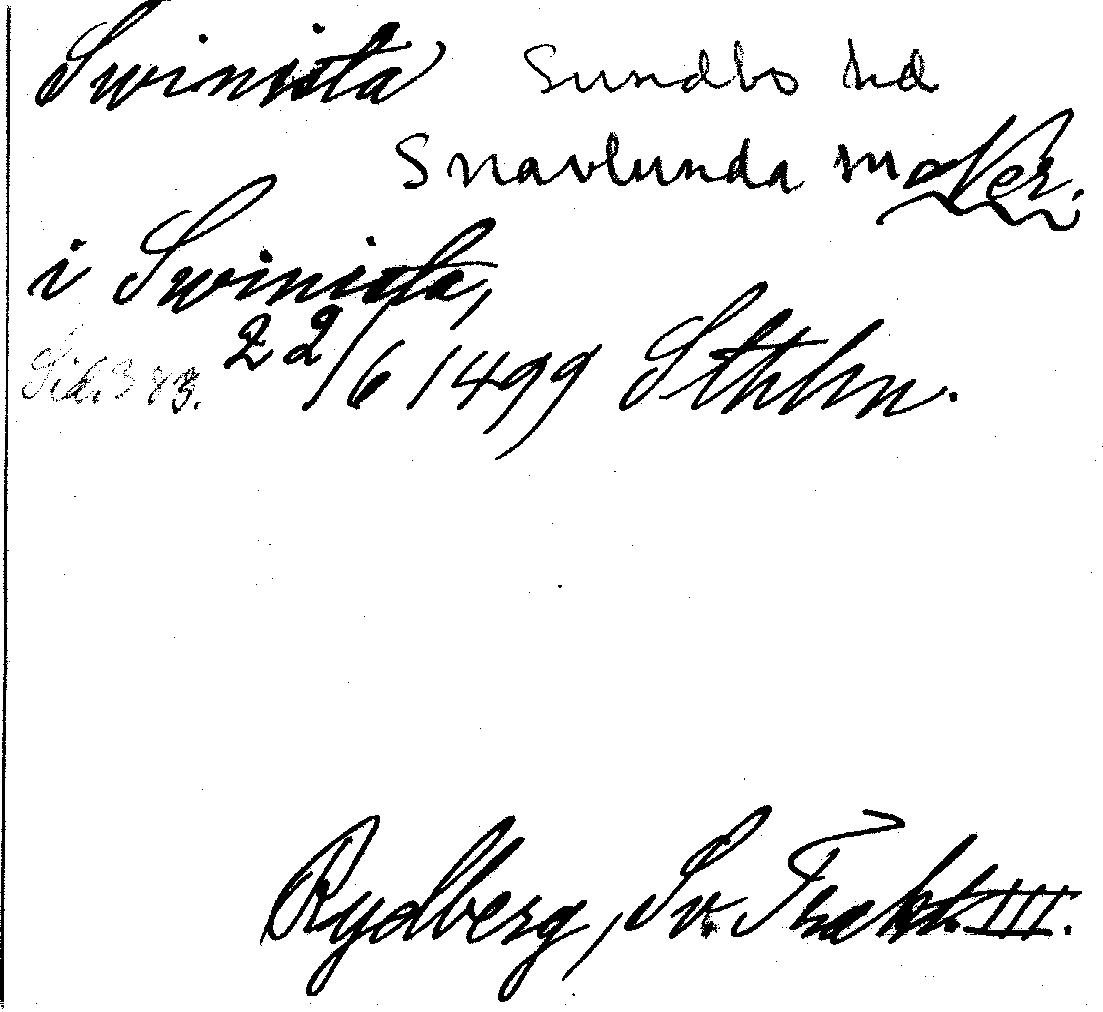 Swinista Sundbo hd
Snavlunda sn Ner.
i Swinista,
Sid. 383. 22/6 1499 Sthlm.
Rydberg, Sv. Trakt. III.